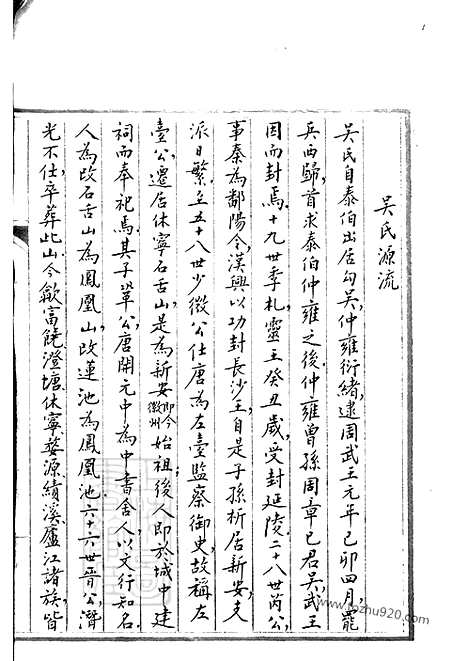 吳氏源流
吳氏自泰伯出居勾吳,仲雍衍緒,逮周武王元年己卯四月,罷
兵西歸,首求泰伯仲雍之後,仲雍曾孫周章已君吳,武王
因而封焉,十九世季札,靈王癸丑歲,受封延陵,二十八世芮公,
事秦為鄱陽令,漢興以功封長沙王,自是子孫析居新安,支
派日繁,至五十八世少微公仕唐為左臺監察御史,故稱左
臺公,遷居休寧石舌山,是為新安即今徽州始祖,後人即於城中建
祠而奉祀焉,其子鞏公,唐開元中為中書舍人以文行知名,
人為改石舌山為鳳凰山,改蓮池為鳳凰池六十六世晉公,潛
光不仕,卒葬此山,今歙富饒澄塘休寧婺源績溪廬江諸族,皆
1
www.fozhu920.com